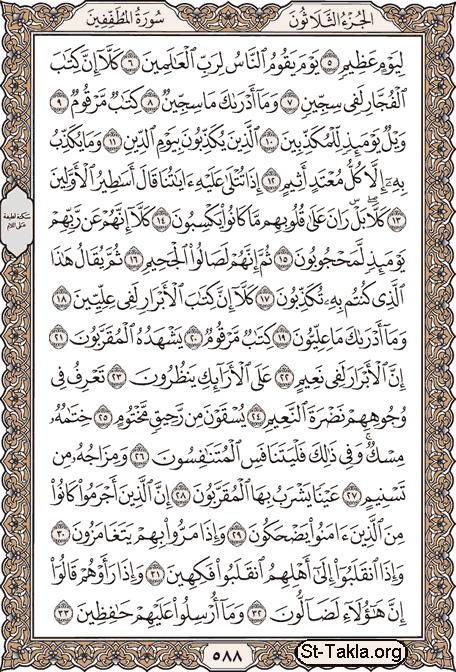 الجزء الثلاثون
سورة المطففين
لِيَوْمٍ عَظِيمٍ ٥ يَوْمَ يَقُومُ ٱلنَّاسُ لِرَبِّ ٱلْعَٰلَمِينَ ٦ كَلَّآ إِنَّ كِتَٰبَ
ٱلْفُجَّارِ لَفِى سِجِّينٍ ٧ وَمَآ أَدْرَىٰكَ مَا سِجِّينٌ ٨ كِتَٰبٌ مَّرْقُومٌ ٩
وَيْلٌ يَوْمَئِذٍ لِّلْمُكَذِّبِينَ ١٠ ٱلَّذِينَ يُكَذِّبُونَ بِيَوْمِ ٱلدِّينِ ١١ وَمَا يُكَذِّبُ
بِهِۦٓ إِلَّا كُلُّ مُعْتَدٍ أَثِيمٍ ١٢ إِذَا تُتْلَىٰ عَلَيْهِ ءَايَٰتُنَا قَالَ أَسَٰطِيرُ ٱلْأَوَّلِينَ
١٣ كَلَّا ۖ بَلْ ۜ رَانَ عَلَىٰ قُلُوبِهِم مَّا كَانُوا۟ يَكْسِبُونَ ١٤ كَلَّآ إِنَّهُمْ عَن رَّبِّهِمْ
يَوْمَئِذٍ لَّمَحْجُوبُونَ ١٥ ثُمَّ إِنَّهُمْ لَصَالُوا۟ ٱلْجَحِيمِ ١٦ ثُمَّ يُقَالُ هَٰذَا
ٱلَّذِى كُنتُم بِهِۦ تُكَذِّبُونَ ١٧ كَلَّآ إِنَّ كِتَٰبَ ٱلْأَبْرَارِ لَفِى عِلِّيِّينَ ١٨
وَمَآ أَدْرَىٰكَ مَا عِلِّيُّونَ ١٩ كِتَٰبٌ مَّرْقُومٌ ٢٠ يَشْهَدُهُ ٱلْمُقَرَّبُونَ ٢١
إِنَّ ٱلْأَبْرَارَ لَفِى نَعِيمٍ ٢٢ عَلَى ٱلْأَرَآئِكِ يَنظُرُونَ ٢٣ تَعْرِفُ فِى
وُجُوهِهِمْ نَضْرَةَ ٱلنَّعِيمِ ٢٤ يُسْقَوْنَ مِن رَّحِيقٍ مَّخْتُومٍ ٢٥ خِتَٰمُهُۥ
مِسْكٌ ۚ وَفِى ذَٰلِكَ فَلْيَتَنَافَسِ ٱلْمُتَنَٰفِسُونَ ٢٦ وَمِزَاجُهُۥ مِن
تَسْنِيمٍ ٢٧ عَيْنًا يَشْرَبُ بِهَا ٱلْمُقَرَّبُونَ ٢٨ إِنَّ ٱلَّذِينَ أَجْرَمُوا۟ كَانُوا۟
مِنَ ٱلَّذِينَ ءَامَنُوا۟ يَضْحَكُونَ ٢٩ وَإِذَا مَرُّوا۟ بِهِمْ يَتَغَامَزُونَ ٣٠
وَإِذَا ٱنقَلَبُوٓا۟ إِلَىٰٓ أَهْلِهِمُ ٱنقَلَبُوا۟ فَكِهِينَ ٣١ وَإِذَا رَأَوْهُمْ قَالُوٓا۟
إِنَّ هَٰٓؤُلَآءِ لَضَآلُّونَ ٣٢ وَمَآ أُرْسِلُوا۟ عَلَيْهِمْ حَٰفِظِينَ ٣٣
سكتة لطيفة
على اللام
٥٨٨
St-Takla.org